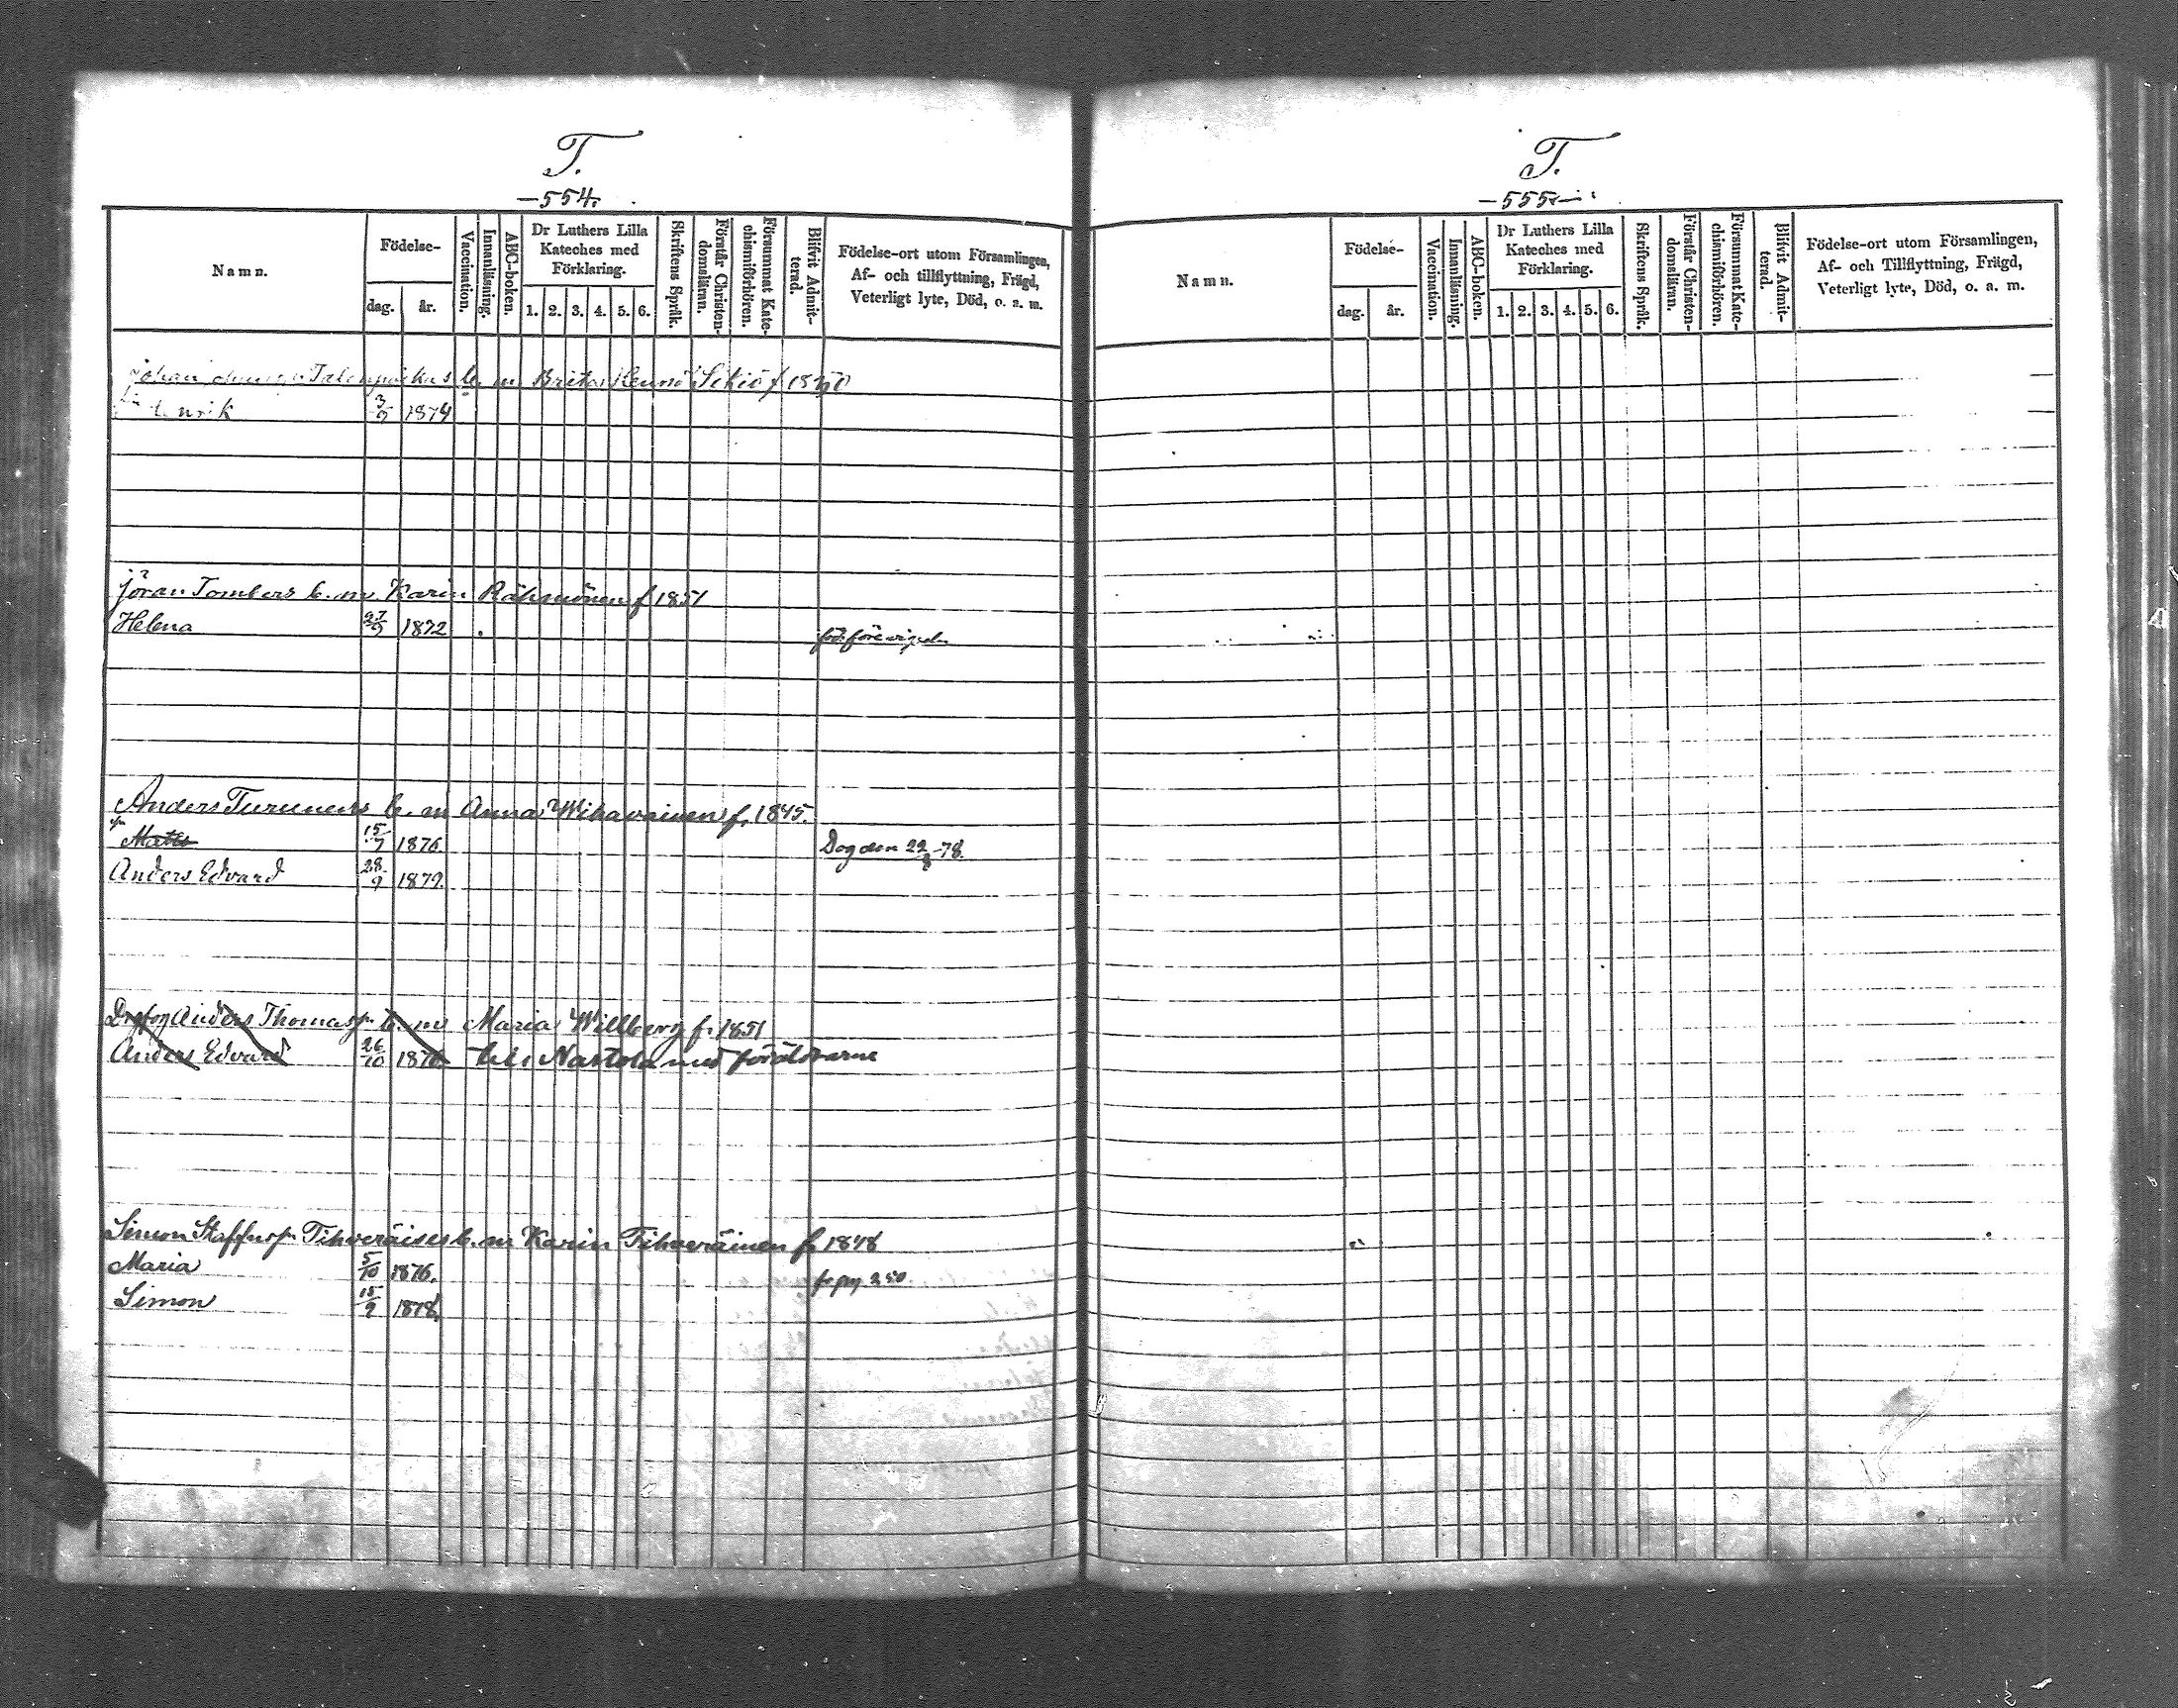 T.
—554.
Namn.
Födelse-
dag.
år.
Vaccination.
Innanläsning.
ABC-boken.
Dr Luthers Lilla
Kateches med
Förklaring.
1. 2. 3. 4. 5. 6.
Skriftens Språk.
Förstår Christen-
domsläran.
Försummat Kate-
chismiförhören.
Blifvit Admit-
terad.
Födelse-ort utom Församlingen,
Af- och tillflyttning, Frägd,
Veterligt lyte, Död, o. a. m.
Johan b. m. Brita
3/9 1874
Jöran Tombers b. m. Karin f 1851
Helena 27/9 1872
Anders Turunens b. m Anna Wihavainen f. 1845.
Matts 15/7 1876 Dog den 22/8 -78.
Anders Edvard 28/9 1879.
Anders Thomasp. b. m. Maria Willberg f. 1851
Anders Edvard 26/10 1876 till Nastola med föräldrarne
Simon Staffansp. Tihveräises b. m Karin Tihveräinen f. 1848
Maria 5/10 1876. fr. pag. 250.
Simon 15/9 1878.
T.
—555.—
Namn.
Födelse-
dag.
år.
Vaccination.
Innanläsning.
ABC-boken.
Dr Luthers Lilla
Kateches med
Förklaring.
1. 2. 3. 4. 5. 6.
Skriftens Språk.
Förstår Christen-
domsläran.
Försummat Kate-
chismiförhören.
Blifvit Admit-
terad.
Födelse-ort utom Församlingen,
Af- och Tillflyttning, Frägd,
Veterligt lyte, Död, o. a. m.